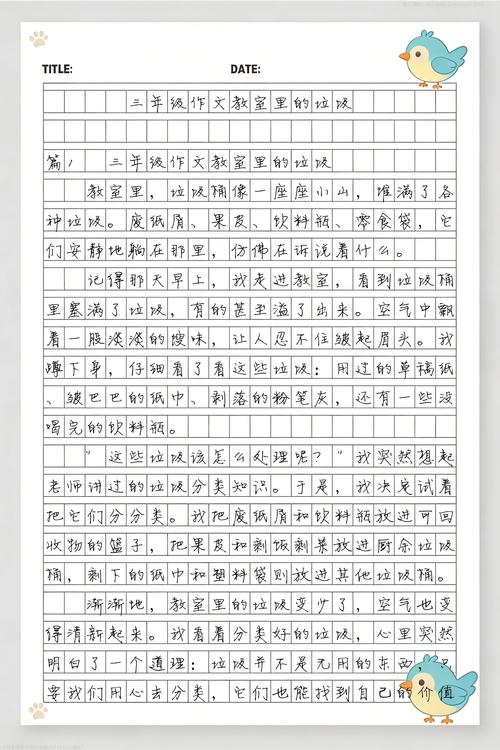 TITLE: DATE:
三年级作文教室里的垃圾
篇1 三年级作文教室里的垃圾
教室里，垃圾桶像一座座小山，堆满了各
种垃圾。废纸屑、果皮、饮料瓶、零食袋，它
们安静地躺在那里，仿佛在诉说着什么。
记得那天早上，我走进教室，看到垃圾桶
里塞满了垃圾，有的甚至溢了出来。空气中飘
着一股淡淡的馊味，让人忍不住皱起眉头。我
蹲下身，仔细看了看这些垃圾：用过的草稿纸
、皱巴巴的纸巾、剥落的粉笔灰，还有一些没
喝完的饮料瓶。
“这些垃圾该怎么处理呢？”我突然想起
老师讲过的垃圾分类知识。于是，我决定试着
把它们分分类。我把废纸屑和饮料瓶放进可回
收物的篮子，把果皮和剩饭剩菜放进厨余垃圾
桶，剩下的纸巾和塑料袋则放进其他垃圾桶。
渐渐地，教室里的垃圾变少了，空气也变
得清新起来。我看着分类好的垃圾，心里突然
明白了一个道理：垃圾并不是无用的东西，只
要我们用心去分类，它们也能找到自己的价值